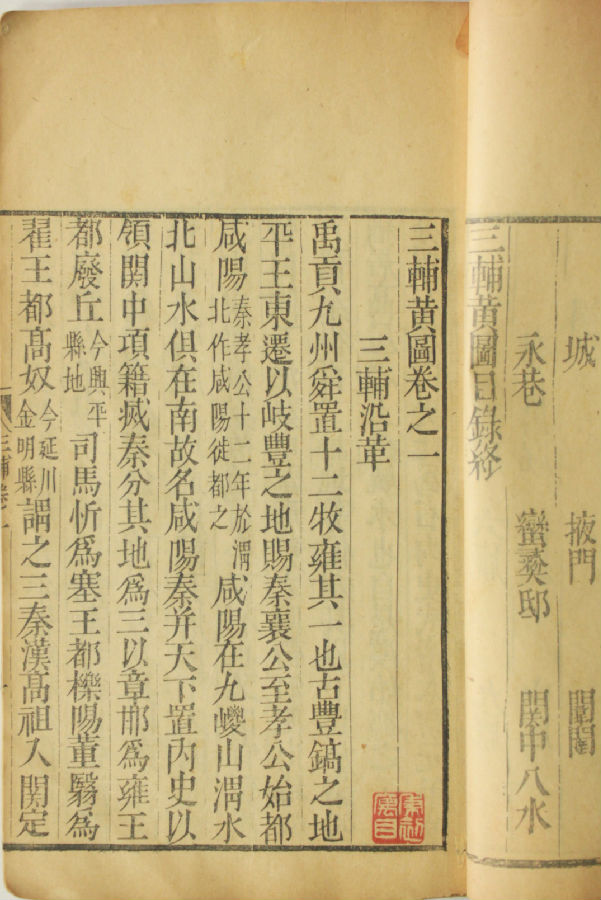 城　掖門　闤闠
永巷　蠻夷邸　關中八水
三輔黄圖目錄終
三輔黄圖卷之一
三輔沿革
禹貢九州舜置十二牧雍其一也古豐鎬之地
平王東遷以岐豐之地賜秦襄公至孝公始都
咸陽秦孝公十二年於渭北作咸陽徙都之咸陽在九嵕山渭水
北山水俱在南故名咸陽秦并天下置内史以
領関中項籍㓕秦分其地爲三以章邯爲雍王
都廢丘今興平縣地司馬忻爲塞王都櫟陽董翳爲
翟王都髙奴今延川金明縣謂之三秦漢髙祖入関定